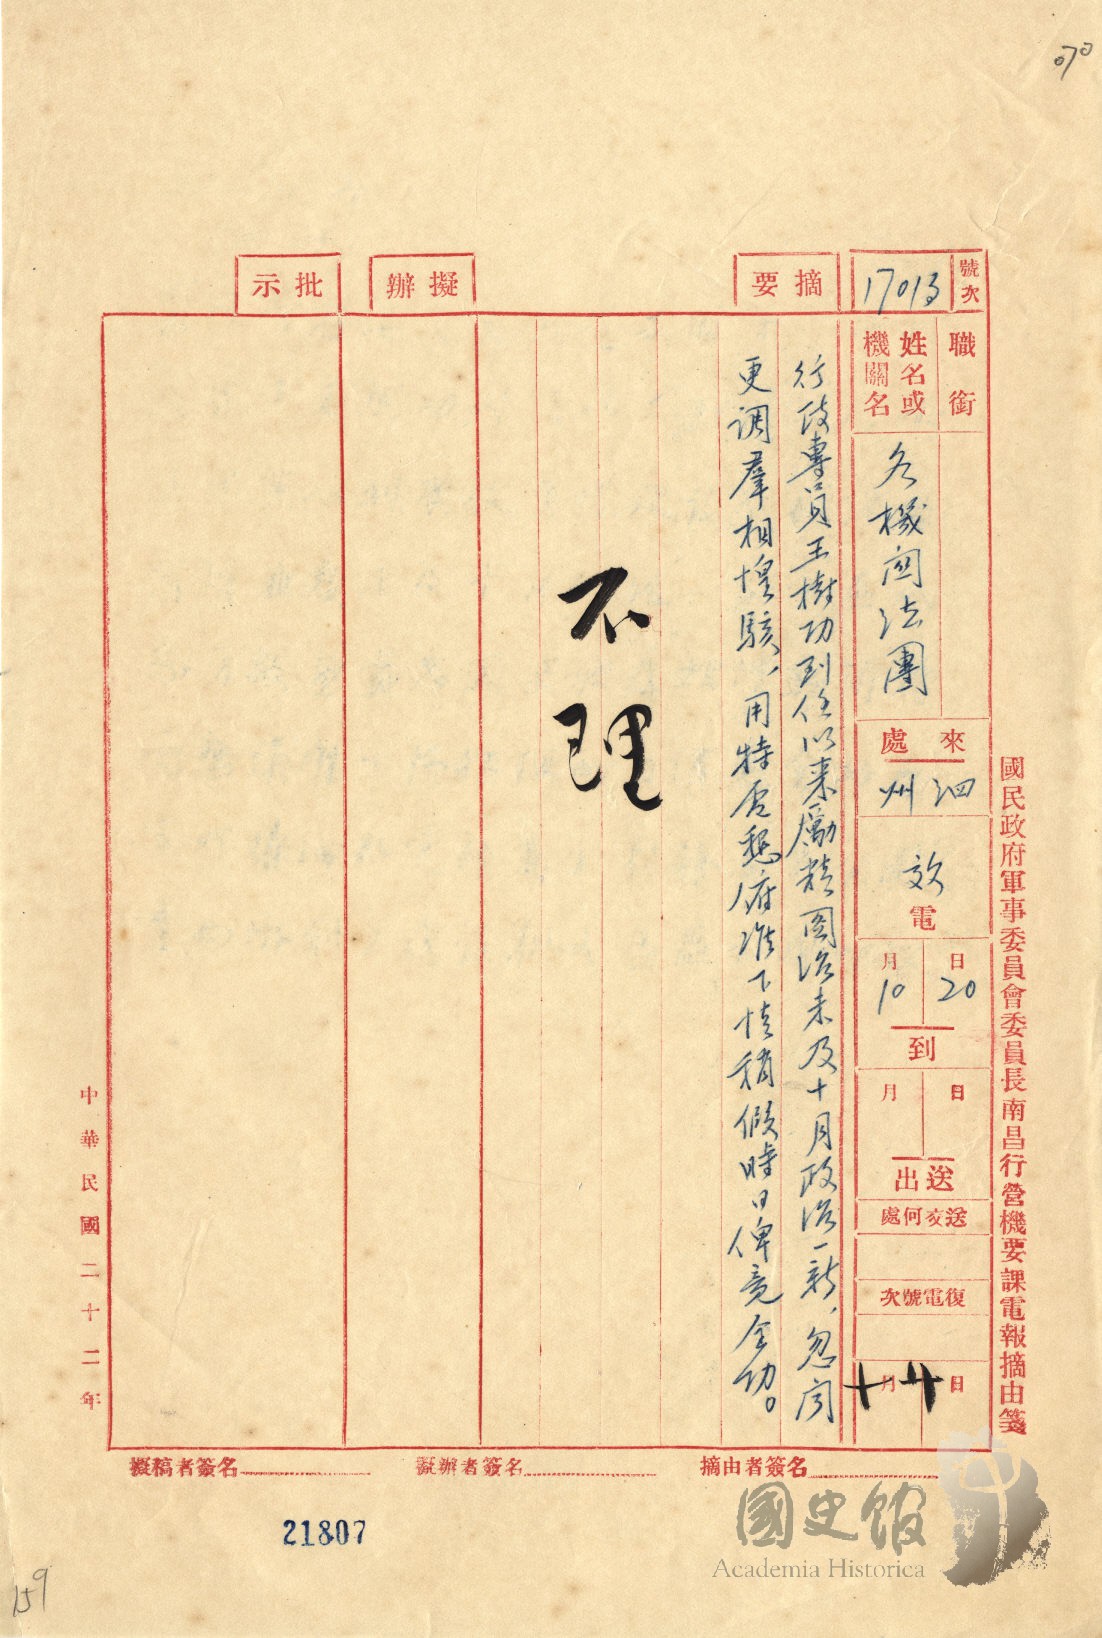 070
國民政府軍事委員會委員長南昌行營機要課電報摘由箋
號次
17013
職銜
姓名或
機關名
各機関法團
來處
泗州
效電
10月20日
到
月日
送出
送交何處
復電號次
十月廿日
摘要
行政專員王樹功到任以来勵精图治未及十月政治一新、忽闻
更调羣相惶駭、用特電懇府准下情稍假時日俾竟全功。
擬辦
不理
批示
中華民國二十二年
摘由者簽名
擬辦者簽名
擬稿者簽名
21807
國史館
Academia Historica
159